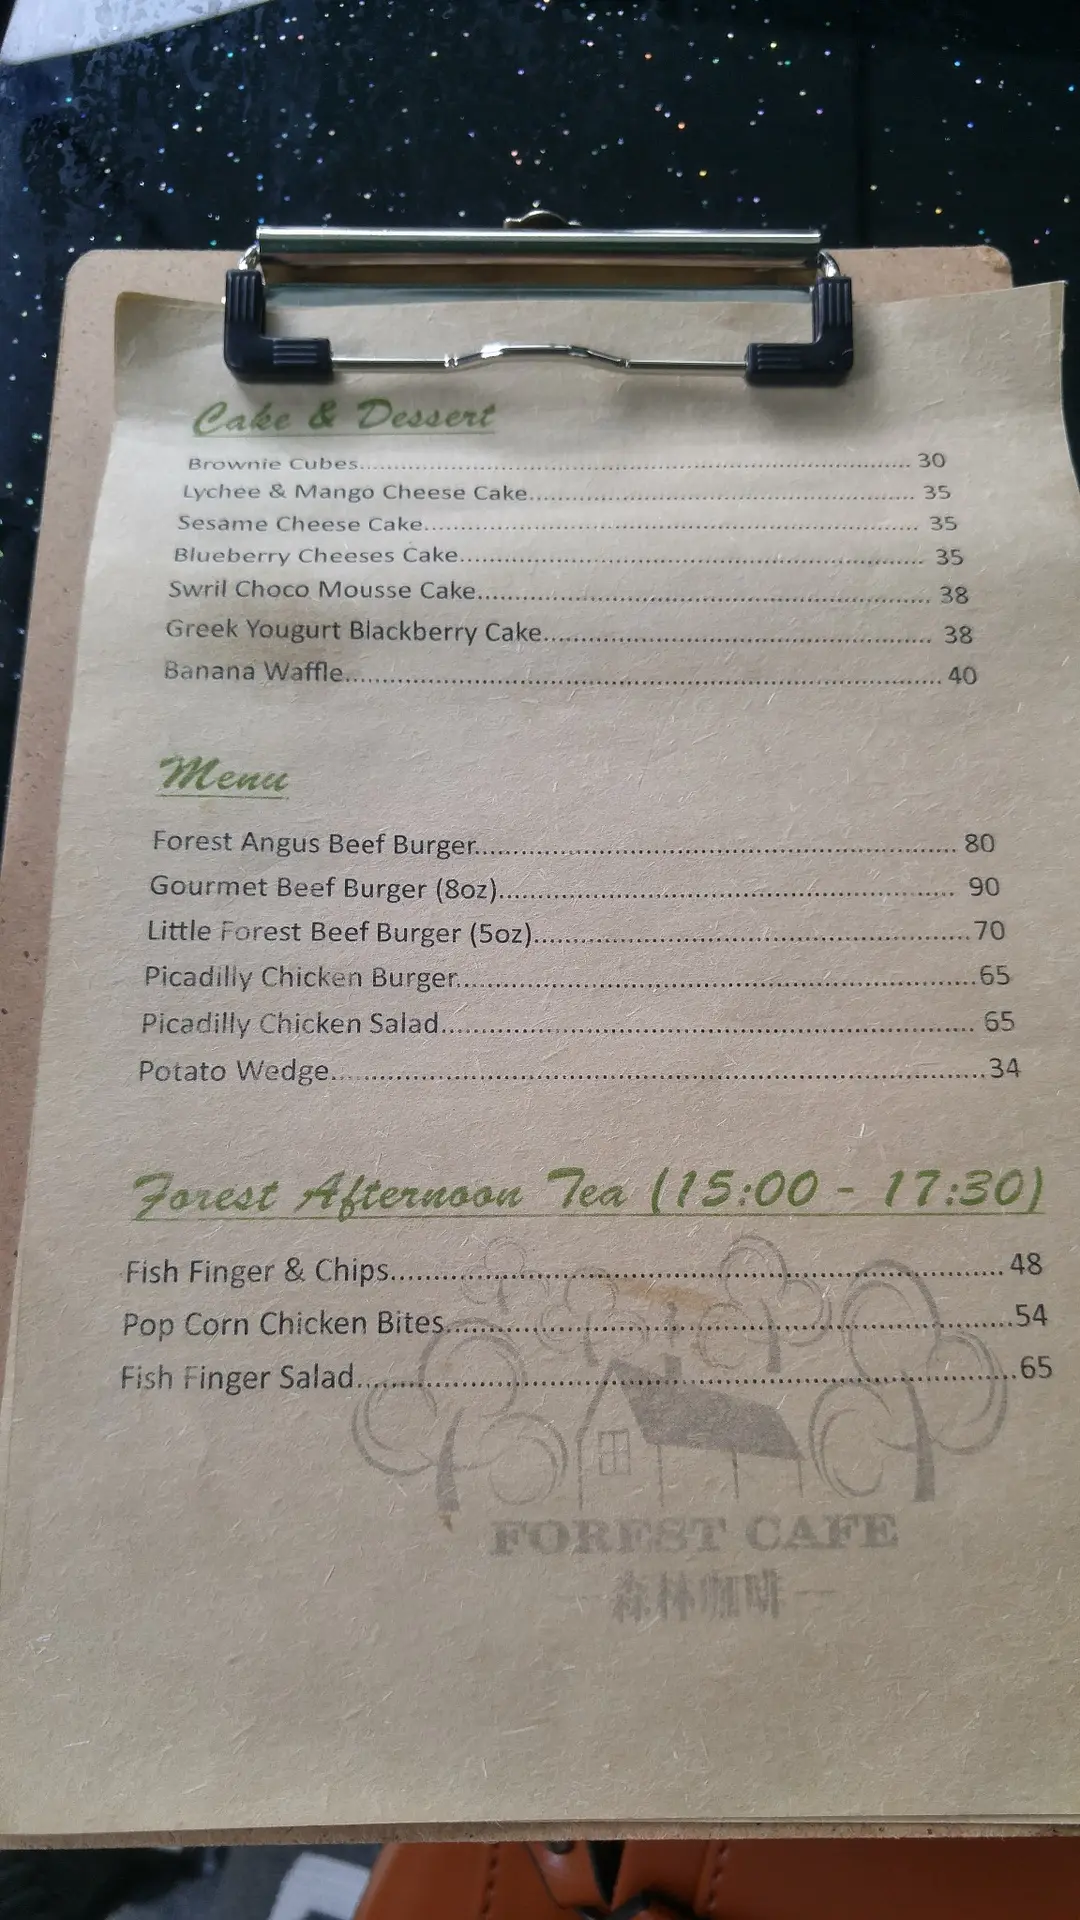 Cake & Dessert
Brownie Cubes................................ 30
Lychee & Mango Cheese Cake................................ 35
Sesame Cheese Cake................................ 35
Blueberry Cheeses Cake................................ 35
Swril Choco Mousse Cake................................ 38
Greek Yougurt Blackberry Cake................................ 38
Banana Waffle................................ 40
Menu
Forest Angus Beef Burger................................ 80
Gourmet Beef Burger (8oz)................................ 90
Little Forest Beef Burger (5oz)................................ 70
Picadilly Chicken Burger................................ 65
Picadilly Chicken Salad................................ 65
Potato Wedge................................ 34
Forest Afternoon Tea (15:00 - 17:30)
Fish Finger & Chips................................ 48
Pop Corn Chicken Bites................................ 54
Fish Finger Salad................................ 65
FOREST CAFE
森林咖啡